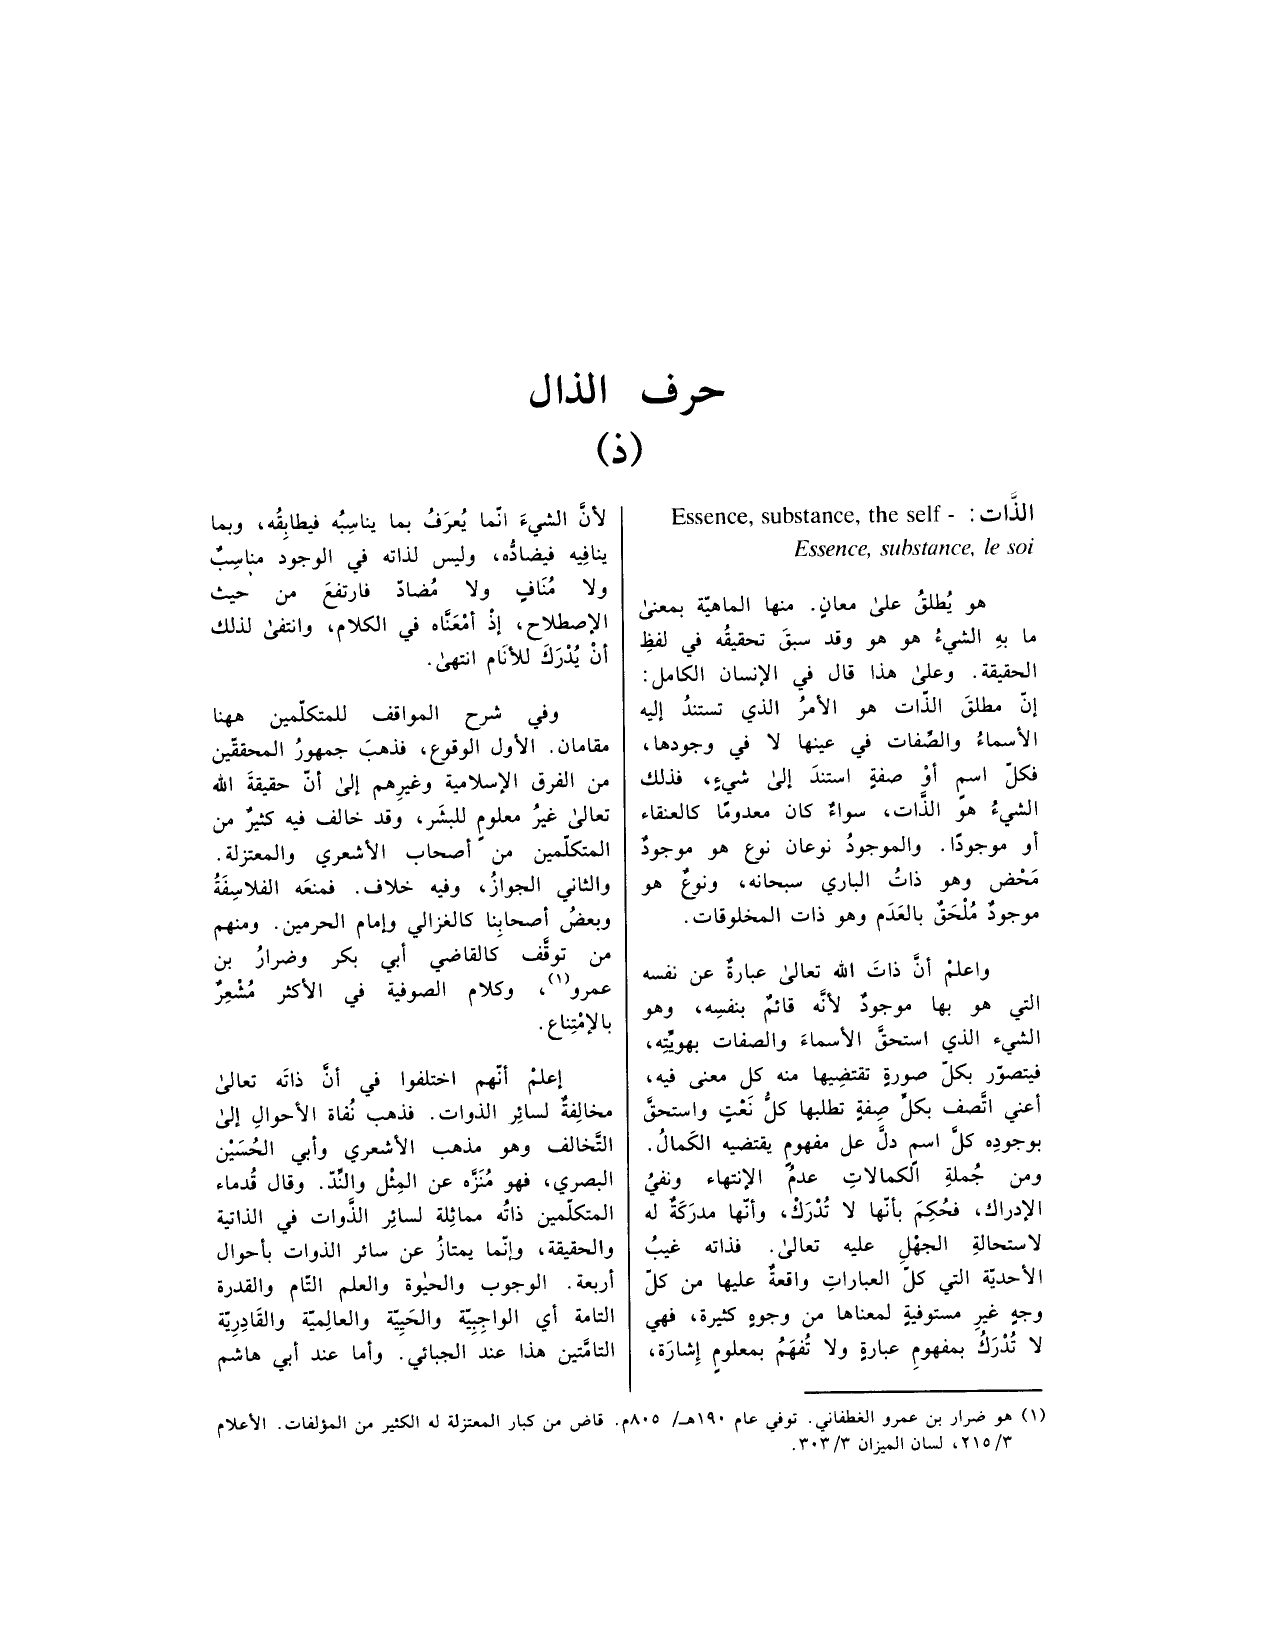 حرف الذال
(ذ)
الذَّات: - Essence, substance, the self
Essence, substance, le soi
هو يُطلقُ علىٰ معانٍ. منها الماهيّة بمعنىٰ
ما بهِ الشيءُ هو هو وقد سبقَ تحقيقُه في لفظِ
الحقيقة. وعلىٰ هذا قال في الإنسان الكامل:
إنّ مطلقَ الذّات هو الأمرُ الذي تستندُ إليه
الأسماءُ والصِّفات في عينها لا في وجودها،
فكلّ اسمٍ أوْ صفةٍ استندَ إلىٰ شيءٍ، فذلك
الشيءُ هو الذَّات، سواءٌ كان معدومًا كالعنقاء
أو موجودًا. والموجودُ نوعان نوع هو موجودٌ
مَحْض وهو ذاتُ الباري سبحانه، ونوعٌ هو
موجودٌ مُلْحَقٌ بالعَدَم وهو ذات المخلوقات.
واعلمْ أنَّ ذاتَ الله تعالىٰ عبارةٌ عن نفسه
التي هو بها موجودٌ لأنَّه قائمٌ بنفسِه، وهو
الشيء الذي استحقَّ الأسماءَ والصفات بهويَّتِه،
فيتصوّر بكلّ صورةٍ تقتضِيها منه كل معنى فيه،
أعني اتَّصف بكلِّ صِفةٍ تطلبها كلُّ نَعْتٍ واستحقَّ
بوجودِه كلَّ اسمٍ دلَّ عل مفهومٍ يقتضيه الكَمالُ.
ومن جُملةِ الكمالاتِ عدمُ الإنتهاء ونفيُ
الإدراك، فحُكِمَ بأنّها لا تُدْرَكْ، وأنّها مدرَكَةٌ له
لاستحالةِ الجهْلِ عليه تعالىٰ. فذاته غيبُ
الأحديّة التي كلّ العباراتِ واقعةٌ عليها من كلّ
وجهٍ غيرِ مستوفيةٍ لمعناها من وجوهٍ كثيرة، فهي
لا تُدْرَكُ بمفهومِ عبارةٍ ولا تُفهَمُ بمعلومِ إشارَة،
لأنَّ الشيءَ انّما يُعرَفُ بما يناسِبُه فيطابِقُه، وبما
ينافِيه فيضادُّه، وليس لذاته في الوجود مناسِبٌ
ولا مُنَافٍ ولا مُضادّ فارتفعَ من حيث
الإصطلاح، إذْ أمْعَنَّاه في الكلام، وانتفىٰ لذلك
أنْ يُدْرَكَ للأنَام انتهىٰ.
وفي شرح المواقف للمتكلّمين ههنا
مقامان. الأول الوقوع، فذهبَ جمهورُ المحققّين
من الفرق الإسلامية وغيرِهم إلىٰ أنّ حقيقةَ الله
تعالىٰ غيرُ معلومٍ للبشَر، وقد خالف فيه كثيرٌ من
المتكلّمين من أصحاب الأشعري والمعتزلة.
والثاني الجوازُ، وفيه خلاف. فمنعَه الفلاسِفَةُ
وبعضُ أصحابِنا كالغزالي وإمام الحرمين. ومنهم
من توقَّف كالقاضي أبي بكر وضرارُ بن
عمرو(١)، وكلام الصوفية في الأكثر مُشْعِرٌ
بالإمْتِناع.
إعلمْ أنّهم اختلفوا في أنَّ ذاتَه تعالىٰ
مخالِفةٌ لسائِر الذوات. فذهب نُفاة الأحوالِ إلىٰ
التَّخالف وهو مذهب الأشعري وأبي الحُسَيْن
البصري، فهو مُنَزَّه عن المِثْل والنِّدّ. وقال قُدماء
المتكلّمين ذاتُه مماثِلة لسائِر الذَّوات في الذاتية
والحقيقة، وإنّما يمتازُ عن سائر الذوات بأحوال
أربعة. الوجوب والحيٰوة والعلم التّام والقدرة
التامة أي الواجِبِيّة والحَيِيّة والعالِميّة والقَادِرِيّة
التامَّتين هذا عند الجبائي. وأما عند أبي هاشم
(١) هو ضرار بن عمرو الغطفاني. توفي عام ١٩٠هـ/ ٨٠٥م. قاض من كبار المعتزلة له الكثير من المؤلفات. الأعلام
٢١٥/٣، لسان الميزان ٣٠٣/٣.